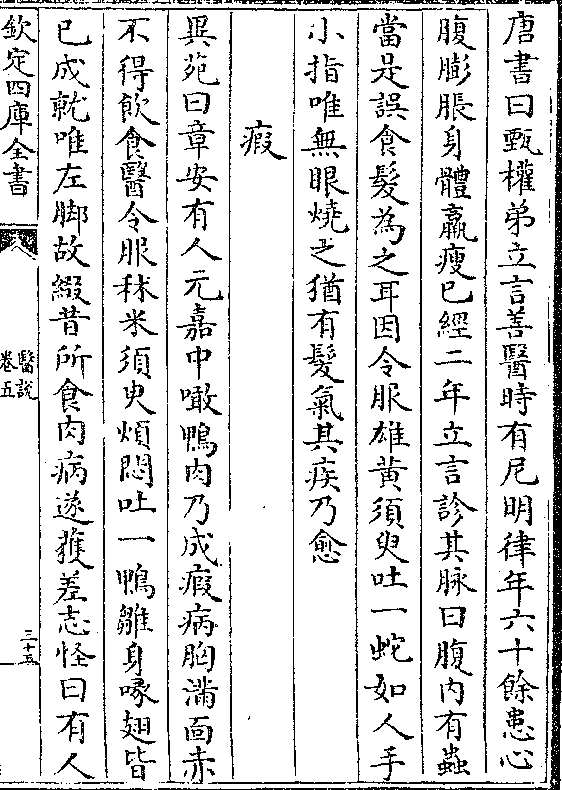 唐書曰甄權弟立言善醫時有尼明律年六十餘患心
腹膨脹身體羸瘦已經二年立言診其脉曰腹內有蟲
當是誤食髮為之耳因令服雄黃須臾吐一蛇如人手
小指唯無眼燒之猶有髮氣其疾乃愈
瘕
異苑曰章安有人元嘉中噉鴨肉乃成瘕病胸滿面赤
不得飲食醫令服秫米須臾煩悶吐一鴨雛身喙翅皆
已成就唯左脚故綴昔所食肉病遂獲差志怪曰有人
欽定四庫全書
醫說
卷五
三十五